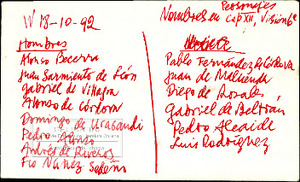 W 18-10-92
Personajes
Nombres en Cap XII, Visión 6ª
Hombres
Alonso Becerra
Juan Sarmiento de León
Gabriel de Villafra
Alonso de Córdova
Domingo de Urabandi
Pedro Alonso
Andrés de Riveros
Fco Núñez Sedeño
Pablo Fernández de Córdova
Juan de Meluenda
Diego de Rosales
Gabriel de Beltrán
Pedro Alcaide
Luis Rodríguez